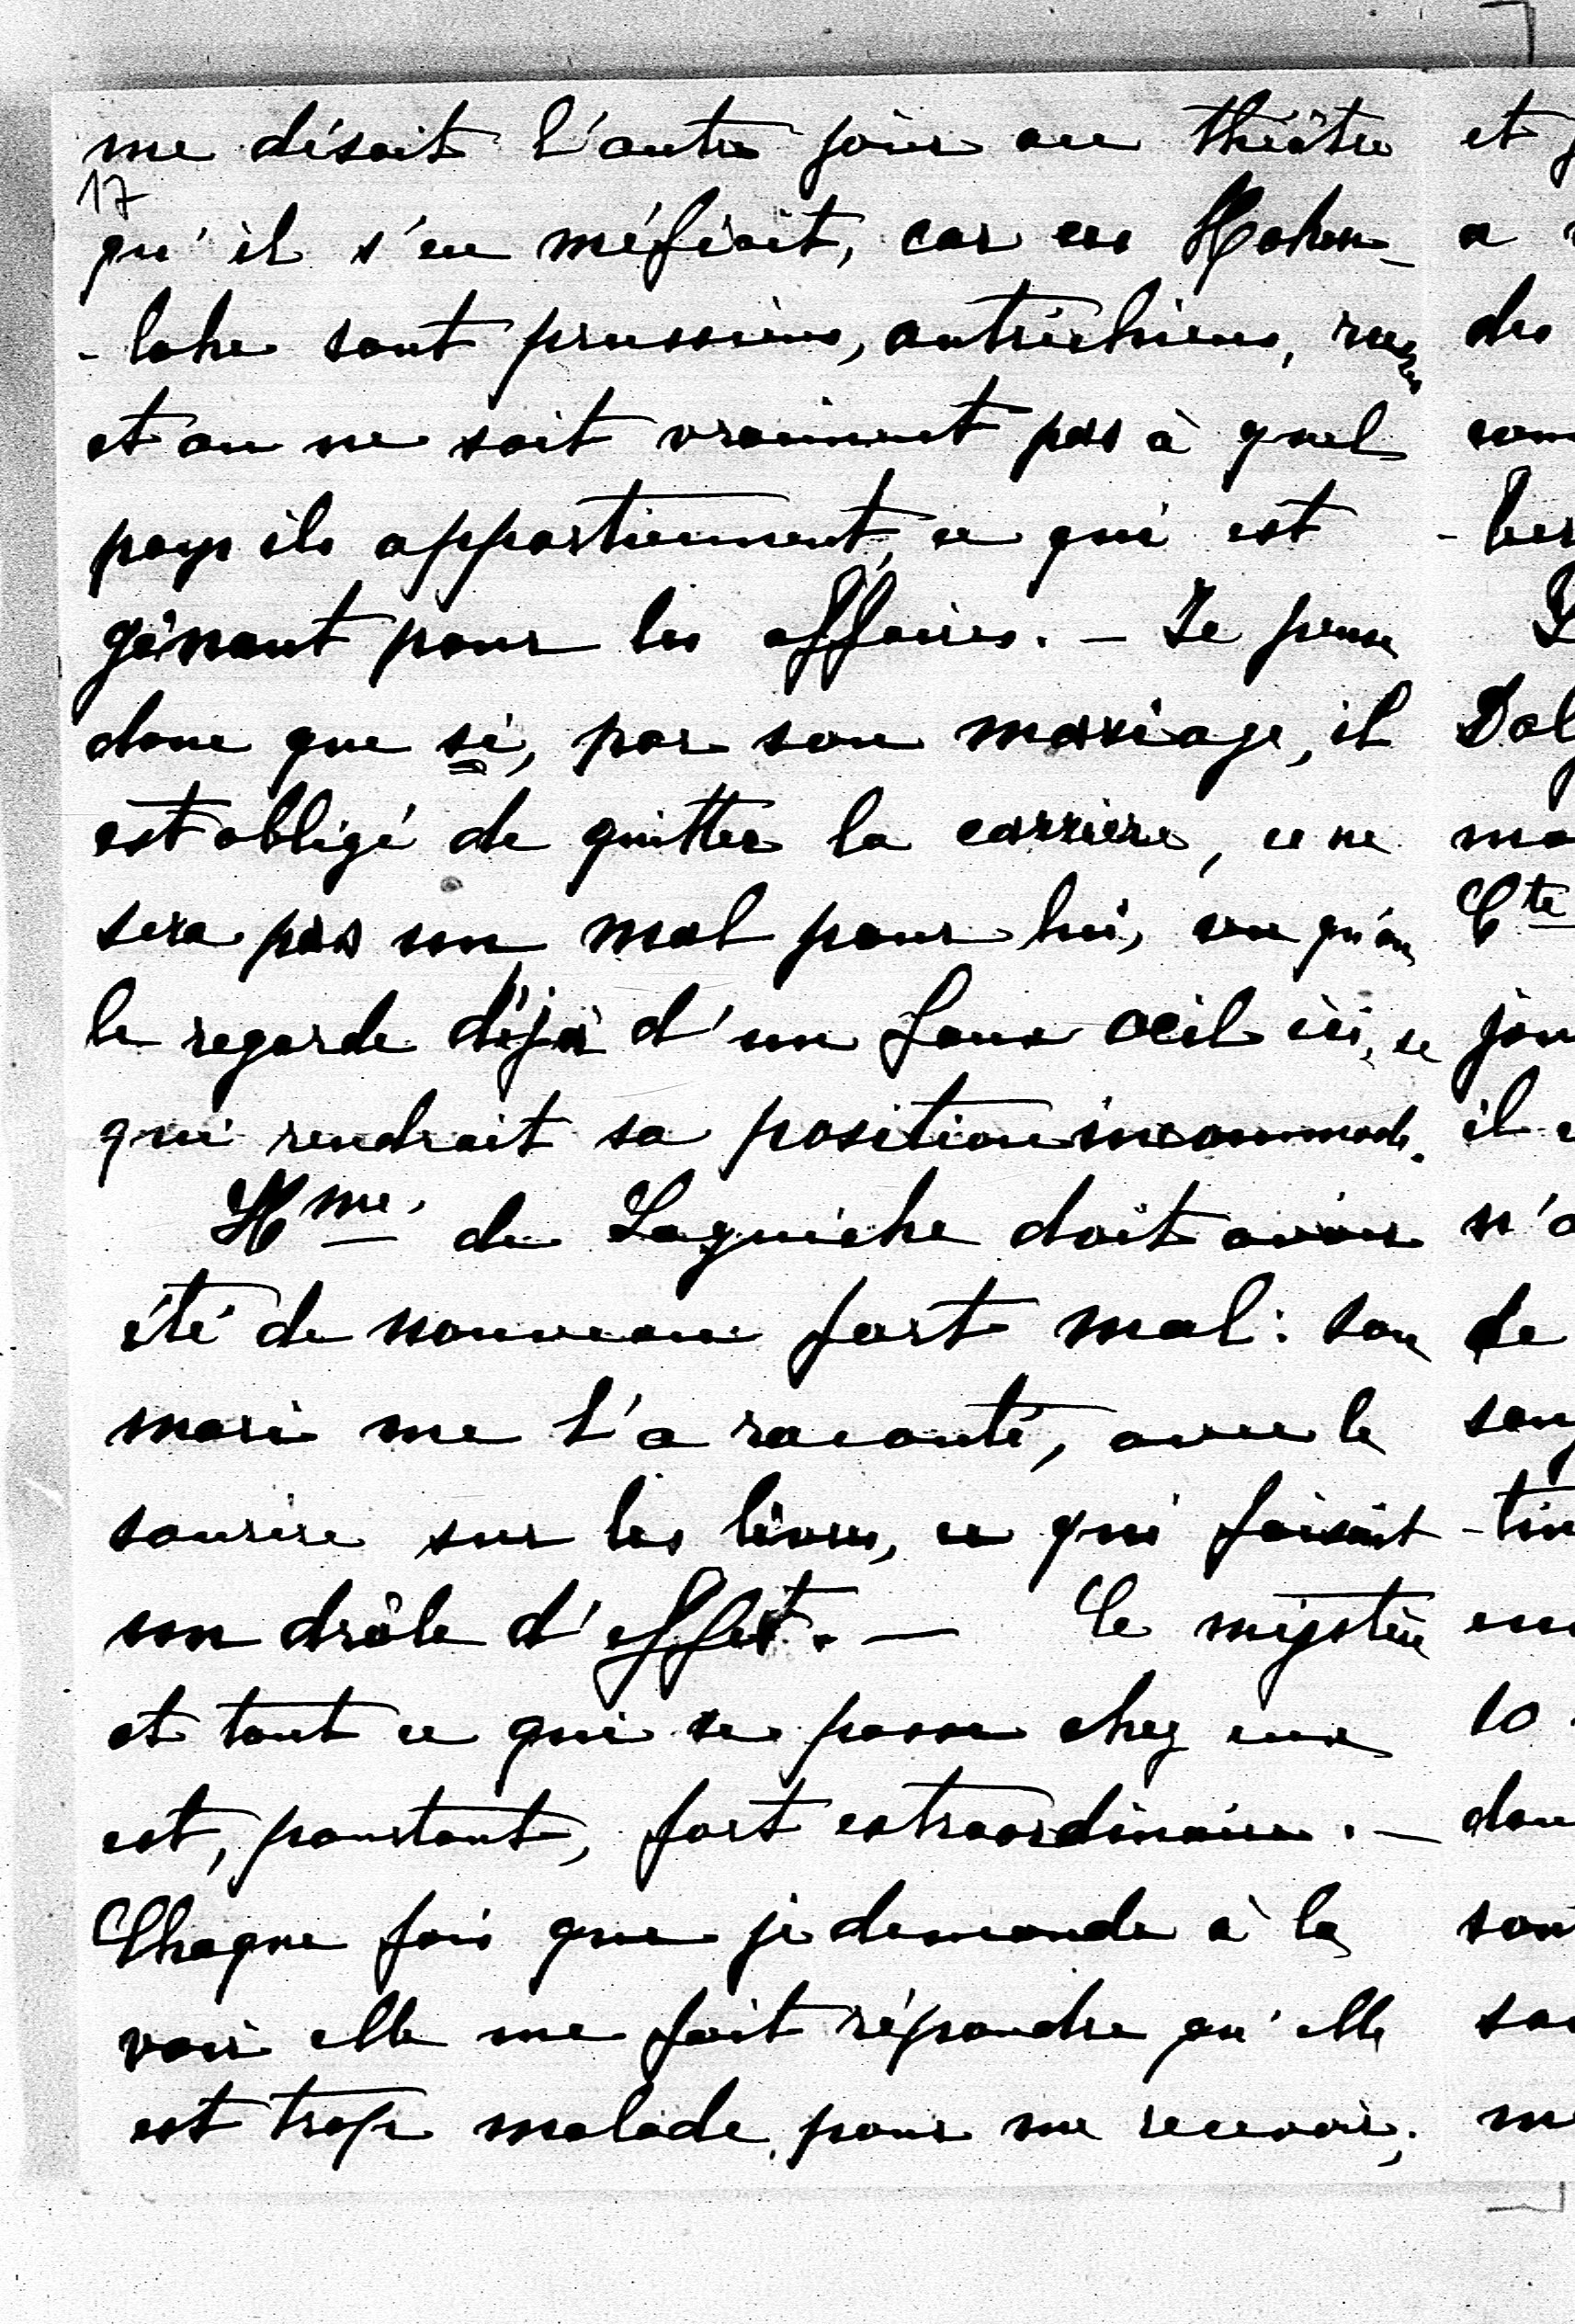 me disait l'autre jour au théâtre
17
qu'il s'en méfiait, car ces Hohen-
-lohe sont prussiens, autrichiens, russes
et on ne sait vraiment pas à quel
pays ils appartiennent, ce qui est
gênant pour les affaires. – Je pense
donc que si, par son mariage, il
est obligé de quitter la carrière, ce ne
sera pas un mal pour lui, vu qu'on
le regarde déjà d'un faux oeil ici, ce
qui rendrait sa position incommode.
Mme. de Laguiche doit avoir
été de nouveau fort mal: son
mari me l'a raconté, avec le
sourire sur les lèvres, ce qui faisait
un drôle d'effet. — Le mystère
et tout ce qui se passe chez eux
est, pourtant, fort extraordinaire. –
Chaque fois que je demande à la
voir elle me fait répondre qu'elle
est trop malade pour me recevoir;
et
a
des
com
- ber
Dol
ma
Cte
jou
il
n'a
de
song
- tin
en
10
dou
son
sa
me